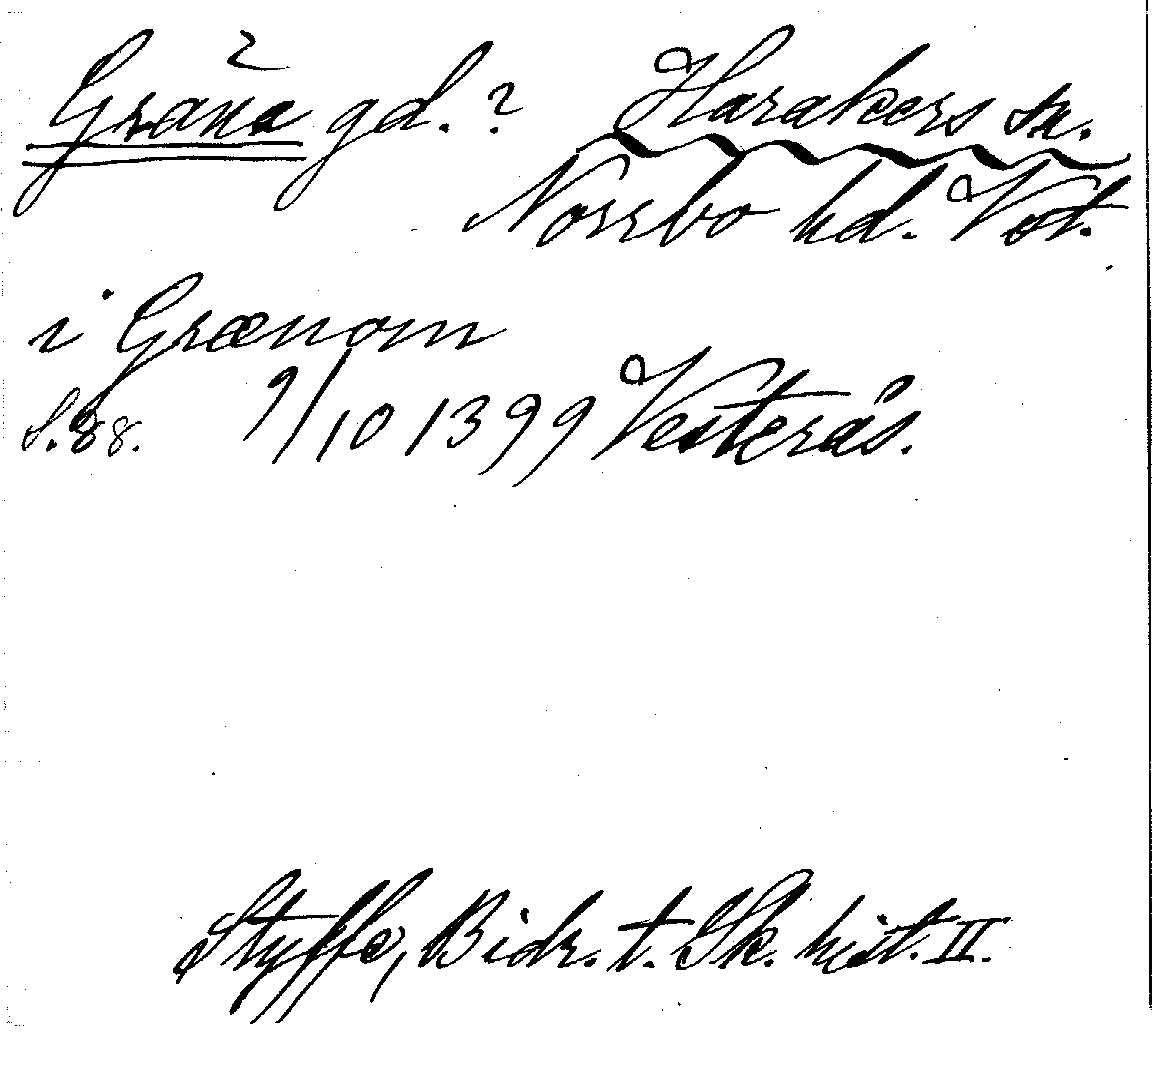 Gräna gd.? Harakers sn.
Norrbo hd. Vst.
i Grænom
S. 88. 9/10 1399 Vesterås.
Styffe, Bidr. t. Sk. hist. II.